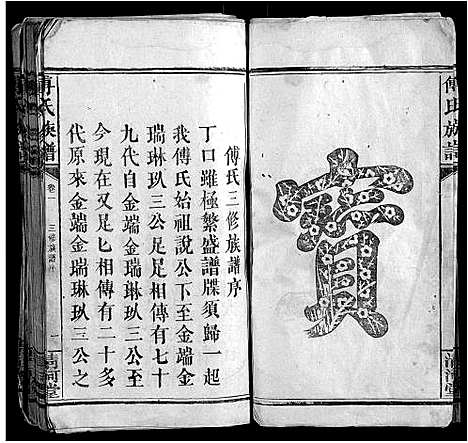 傅氏族譜
寶
清河堂
傅氏三修族譜序
丁口雖極繁盛譜牒須歸一起
我傅氏始祖說公下至金端金
瑞琳玖三公足足相傳有七十
九代自金端金瑞琳玖三公至
今現在又足匕相傳有二十多
代原來金端金瑞琳玖三公之
傅氏族譜
卷一
三修族譜序
一
清河堂